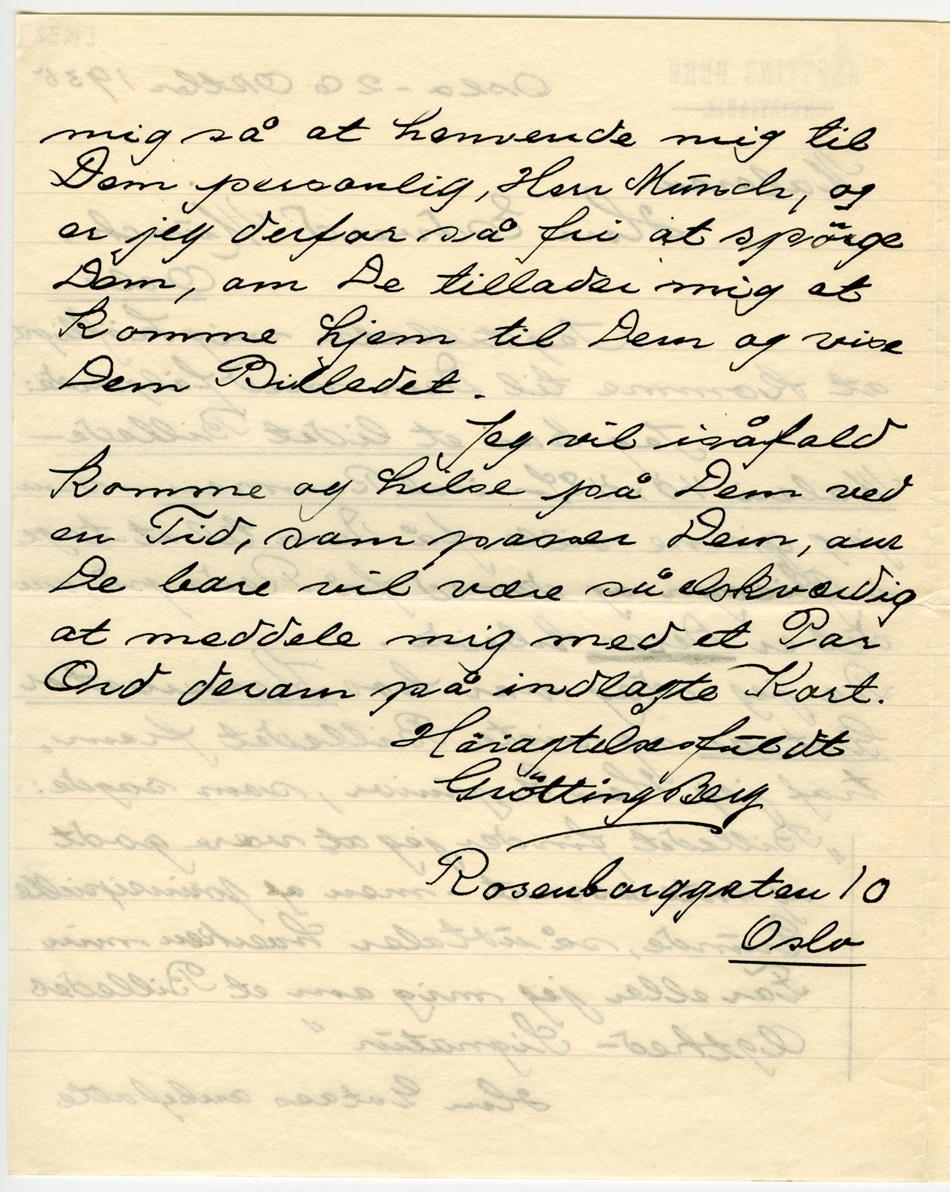 mig så at henvende mig til
Dem personlig, Herr Münch, og
er jeg derfor så fri at spörge
Dem, om De tillader mig at
komme hjem til Dem og vise
Dem Billedet.
Jeg vil isåfald
komme og hilse på Dem ved
en Tid, som passer Dem, om
De bare vil være så elskværdig
at meddele mig med et Par
Ord derom på indlagte Kort.
Höiagtelsesfuldt
Grötting Berg
Rosenborggaten 10
Oslo